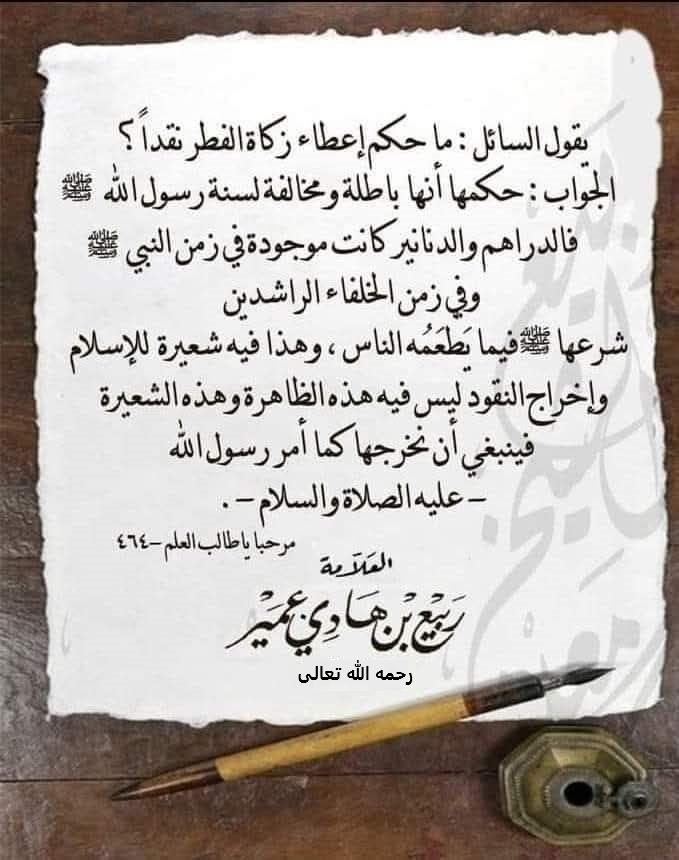 يقول السائل : ما حكم إعطاء زكاة الفطر نقداً ؟
الجواب : حكمها أنها باطلة ومخالفة لسنة رسول الله ﷺ
فالدراهم والدنانير كانت موجودة في زمن النبي ﷺ
وفي زمن الخلفاء الراشدين
شرعها ﷺ فيما يَطعَمُه الناس ، وهذا فيه شعيرة للإسلام
وإخراج النقود ليس فيه هذه الظاهرة وهذه الشعيرة
فينبغي أن نخرجها كما أمر رسول الله
– عليه الصلاة والسلام – .
مرحبا يا طالب العلم – ٤٦٤
العَلّامة
رَبِيْع بْن هَادِي عُمَيْر
رحمه الله تعالى